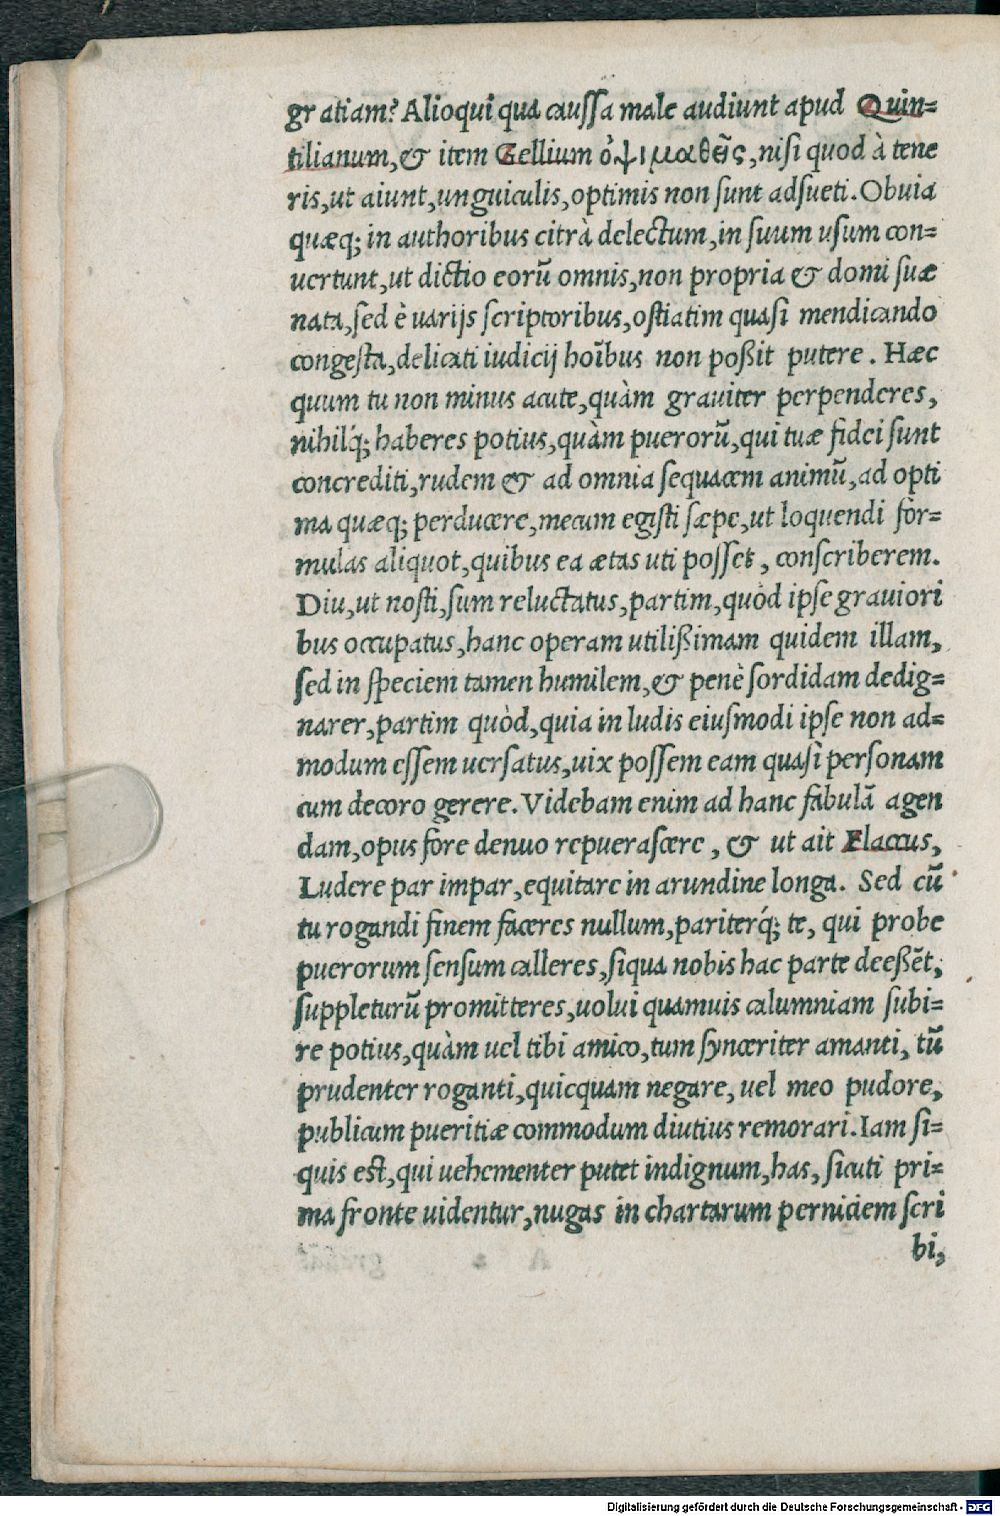 gratiam? Alioqui qua caussa male audiunt apud Quin=
tilianum, & item Gellium ὀψιμαθε͂ς, nisi quod à tene
ris, ut aiunt, unguiculis, optimis non sunt adsueti. Obuia
quæq; in authoribus citrà delectum, in suum usum con=
uertunt, ut dictio eorũ omnis, non propria & domi suæ
nata, sed è uarijs scriptoribus, ostiatim quasi mendicando
congesta, delicati iudicij hoĩbus non poßit putere. Hæc
quum tu non minus acute, quàm grauiter perpenderes,
nihilq́; haberes potius, quàm puerorũ, qui tuæ fidei sunt
concrediti, rudem & ad omnia sequacem animũ, ad opti
ma quæq; perducere, mecum egisti sæpe, ut loquendi for=
mulas aliquot, quibus ea ætas uti posset, conscriberem.
Diu, ut nosti, sum reluctatus, partim, quòd ipse grauiori
bus occupatus, hanc operam utilißimam quidem illam,
sed in speciem tamen humilem, & penè sordidam dedig=
narer, partim quòd, quia in ludis eiusmodi ipse non ad=
modum essem uersatus, uix possem eam quasi personam
cum decoro gerere. Videbam enim ad hanc fabulã agen
dam, opus fore denuo repuerascere, & ut ait Flaccus,
Ludere par impar, equitare in arundine longa. Sed cũ
tu rogandi finem faceres nullum, pariterq́; te, qui probe
puerorum sensum calleres, siqua nobis hac parte deeßẽt,
suppleturũ promitteres, uolui quamuis calumniam subi=
re potius, quàm uel tibi amico, tum synceriter amanti, tũ
prudenter roganti, quicquam negare, uel meo pudore,
publicum pueritiæ commodum diutius remorari. Iam si=
quis est, qui uehementer putet indignum, has, sicuti pri=
ma fronte uidentur, nugas in chartarum perniciem scri
bi,
Digitalisierung gefördert durch die Deutsche Forschungsgemeinschaft - DFG